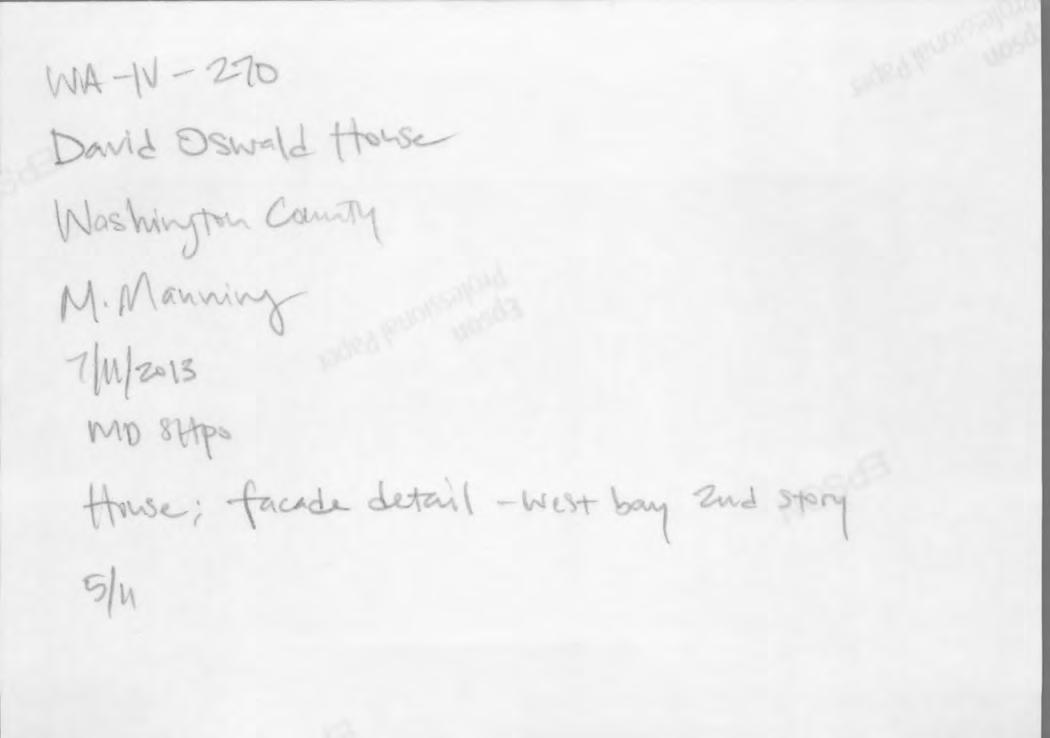 WA-IV-270
David Oswald House
Washington County
M. Manning
7/11/2013
MD SHPO
House; facade detail - west bay 2nd story
5/11
Epson
Professional Paper
Epson
Professional Paper
Epson
Epson